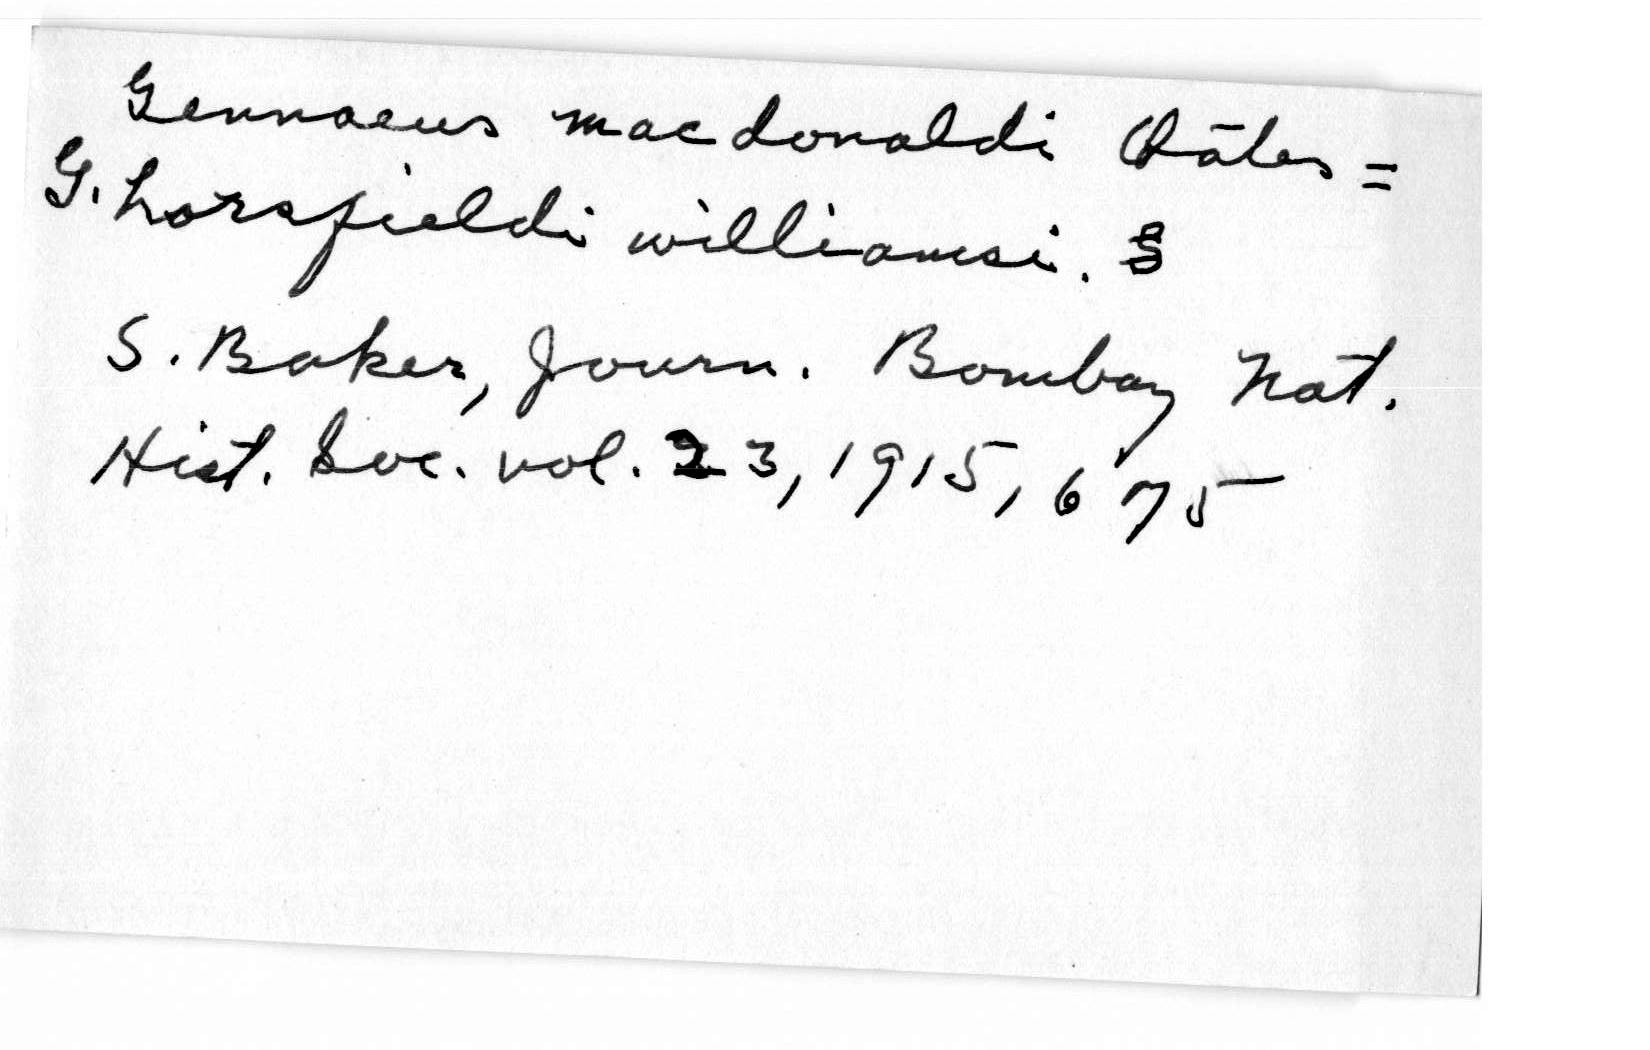 Gennaeus macdonaldi Oates =
G. horsfieldi williamsi.
S. Baker, Journ. Bombay Nat.
Hist. Soc. vol. 23, 1915, 675